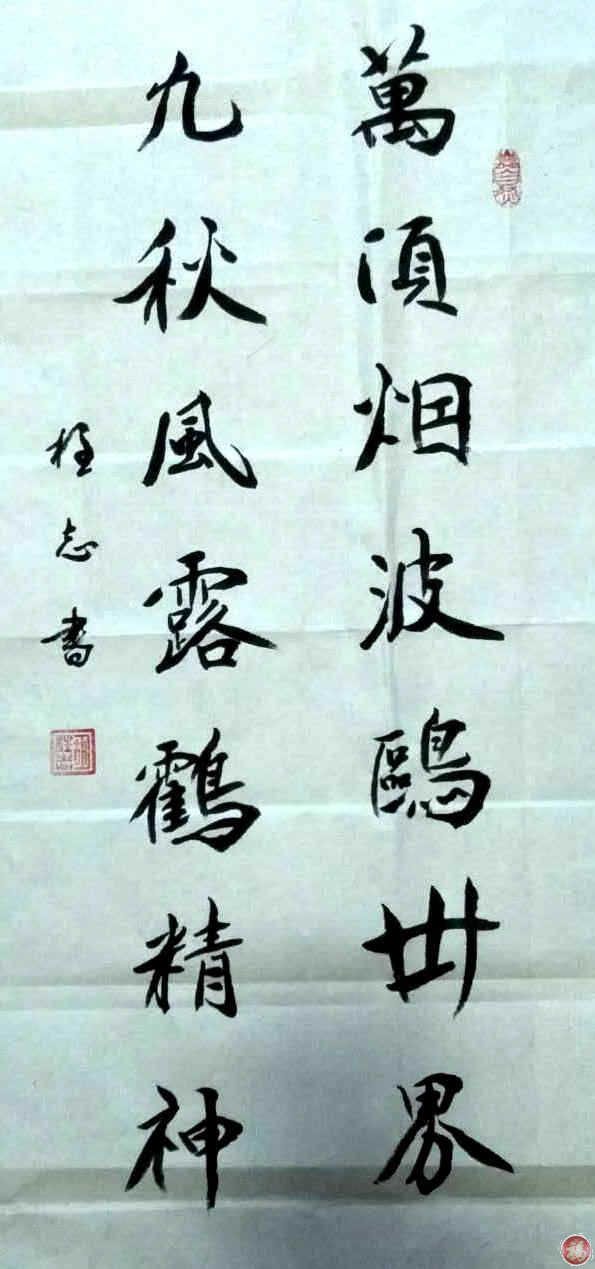 萬頃烟波鷗世界
九秋風露鶴精神
志書
福